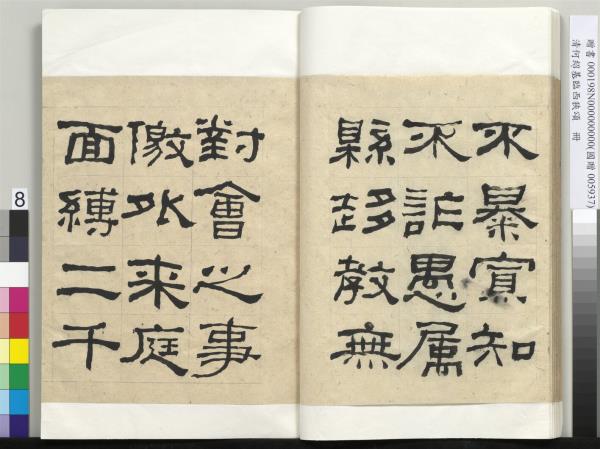 不暴寡知
不詐愚屬
縣趍教無
對會之事
徼外来庭
面縛二千
贈書 000198N000000000(國贈 005937)
清何紹基臨西狹頌 冊
8